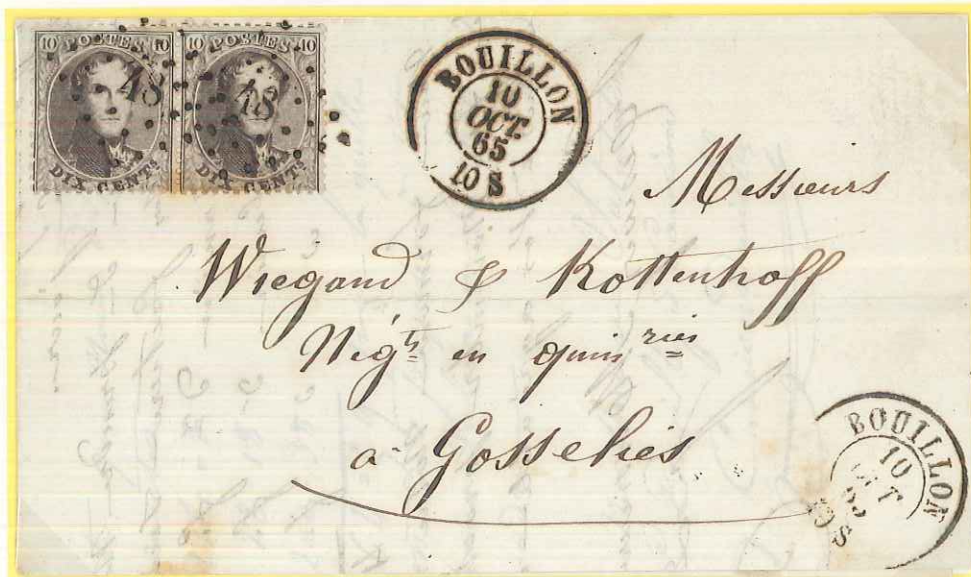 10 POSTES 10 10 POSTES 10
48 48
DIX CENT.S DIX CENT.S
BOUILLON
10
OCT.
65
10 S
Messieurs
Wiegand & Kottenhoff
Nég.ts en quinries
à Gosselies
BOUILLON
10
OCT
65
10 S